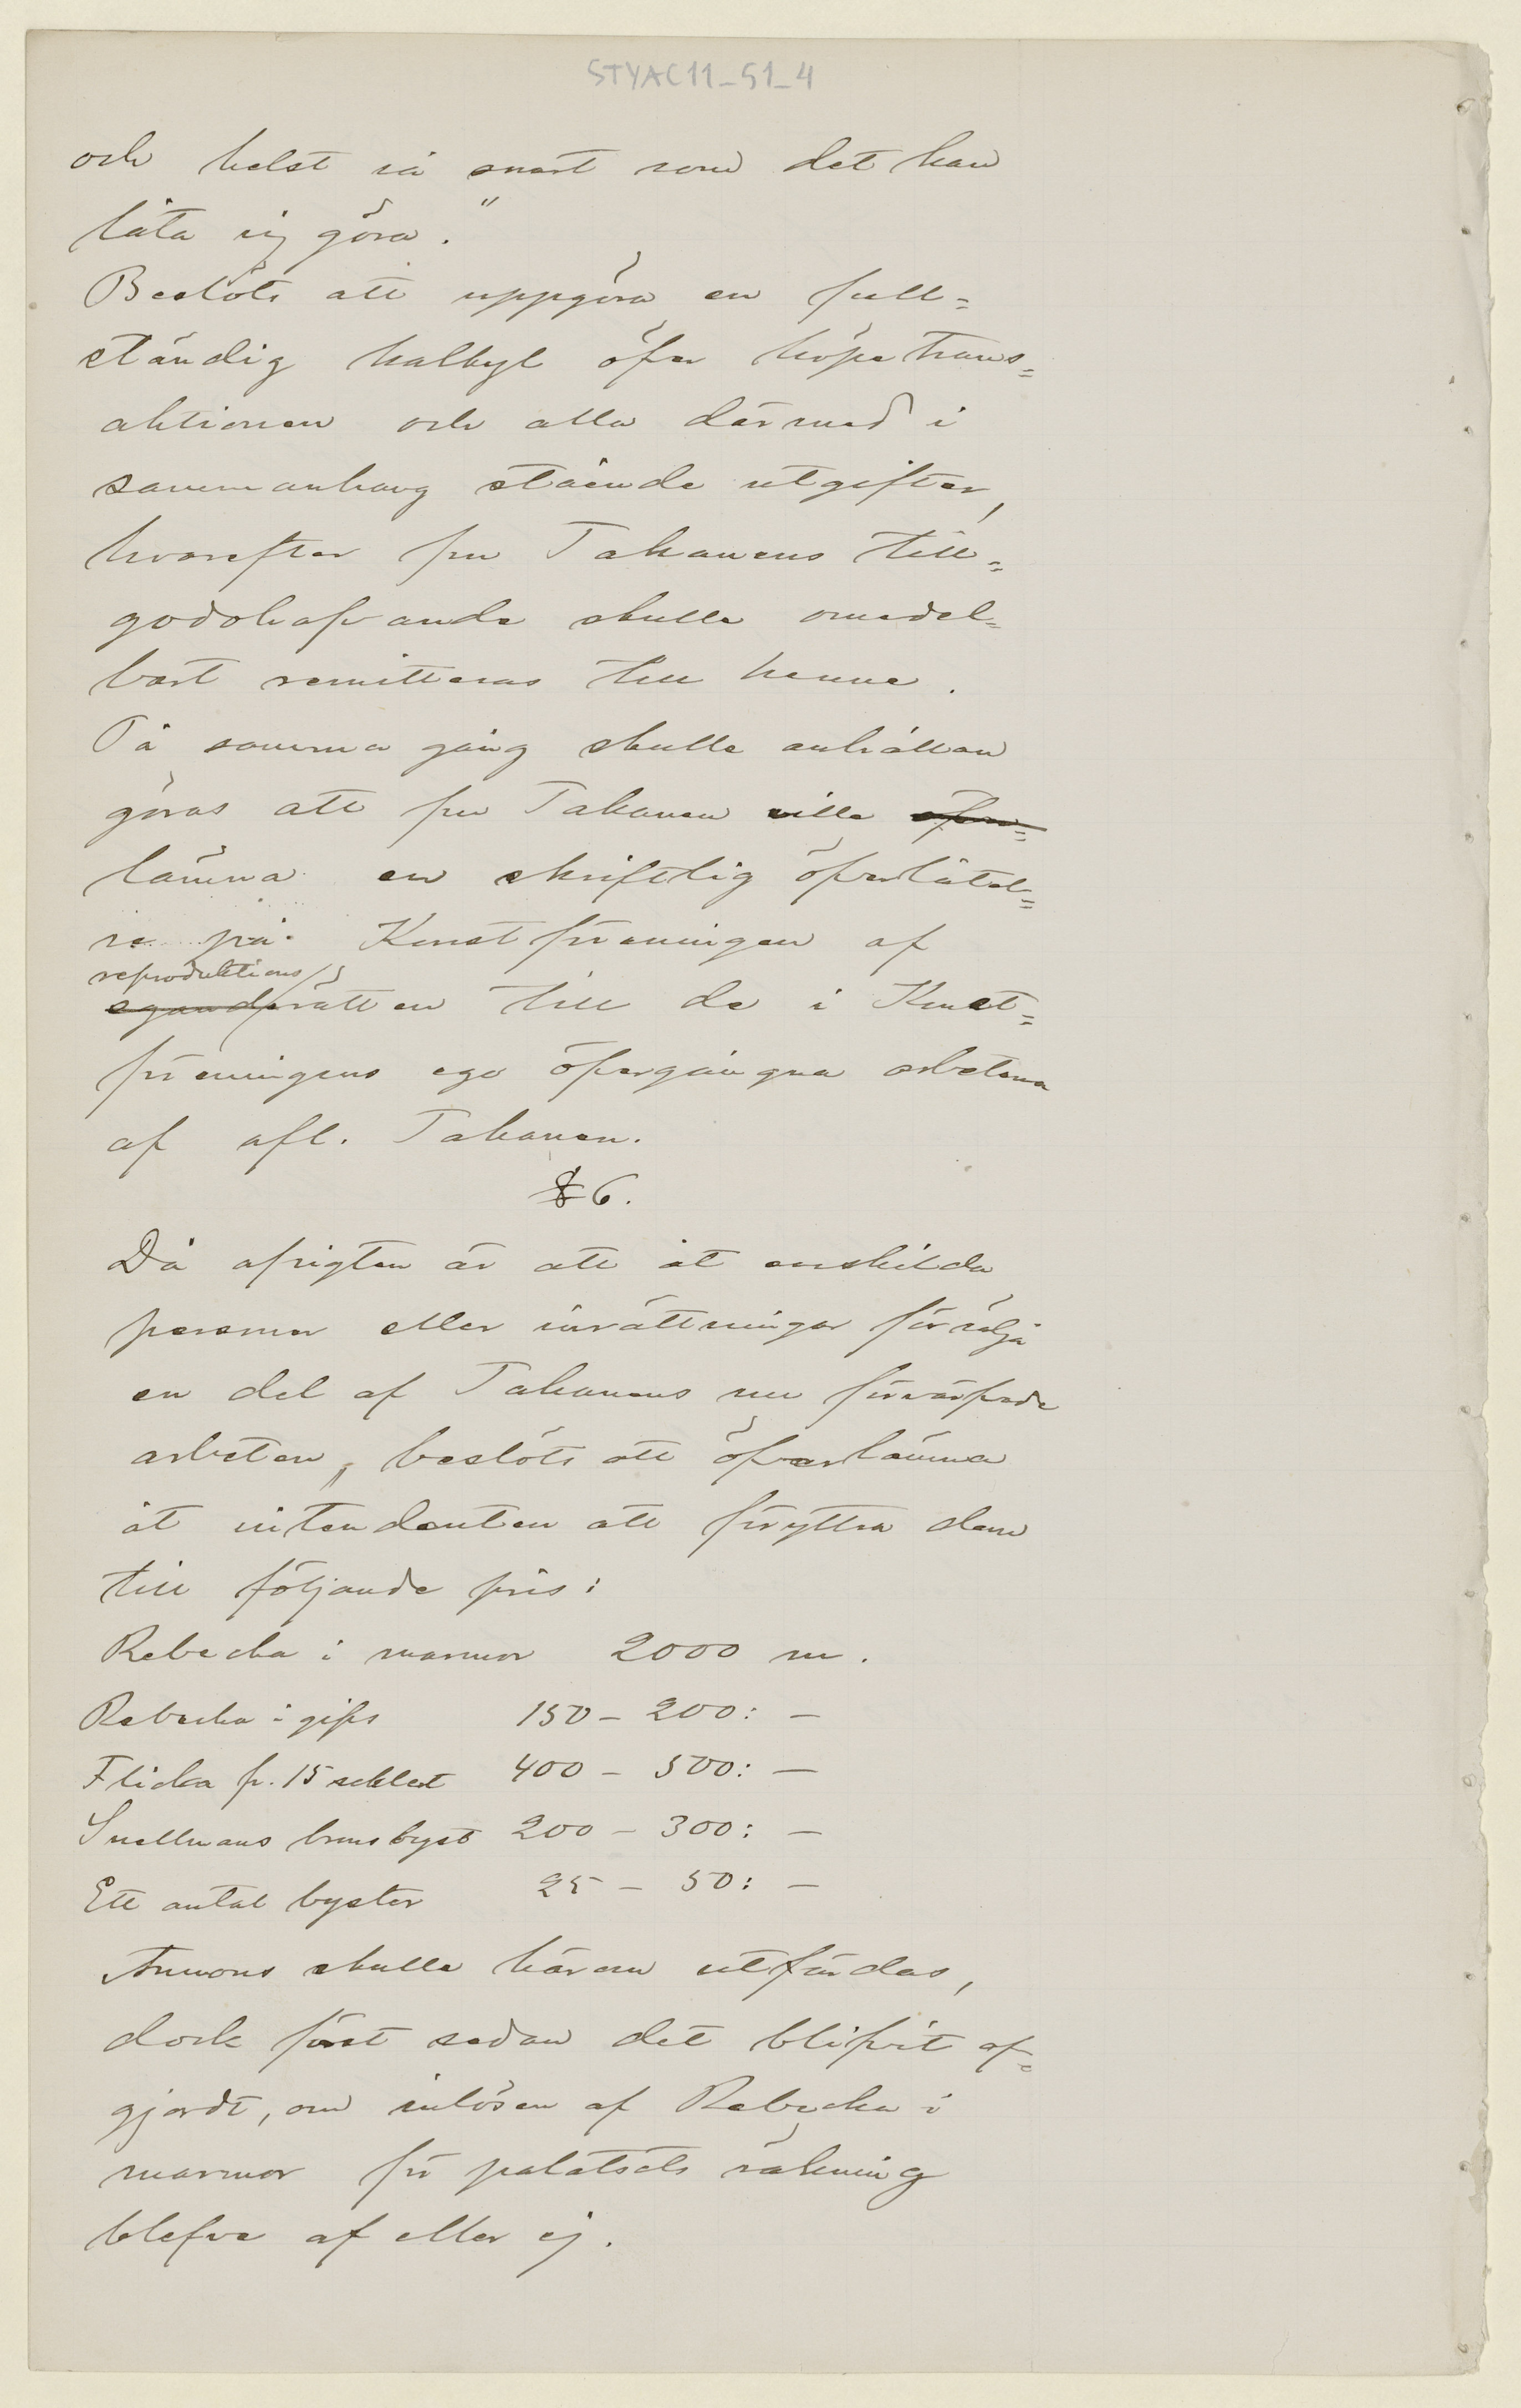 STYAC11_51_4
och helst så snart som det kan
låta sig göra."
Beslöts att uppgöra en full=
ständig kalkyl öfver köpetrans=
aktionen och alla därmed i
sammanhang stående utgifter,
hvarefter fru Takanens till=
godohafvande skulle omedel=
bart remitteras till henne.
På samma gång skulle anhållan
göras att fru Takanen ville öfver=
lämna en skriftlig öfverlåtel=
se på Konstföreningen af
reproduktions
eganderätten till de i Konst=
föreningens ego öfvergångna arbetena
af afl. Takanen.
§ 6.
Då afsigten är att åt enskilda
personer eller inrättningar försälja
en del af Takanens nu förvärfvade
arbeten, beslöts att öfverlämna
åt intendenten att föryttra dem
till följande pris:
Rebecka i marmor 2000 m.
Rebecka i gips 150 – 200: –
Flicka fr. 15 seklet 400 – 500: –
Snellmans bronsbyst 200 – 300: –
Ett antal byster 25 – 50: –
Annons skulle härom utfärdas,
dock först sedan det blifvit af=
gjordt, om inlösen af Rebecka i
marmor för palatsets räkning
blefve af eller ej.